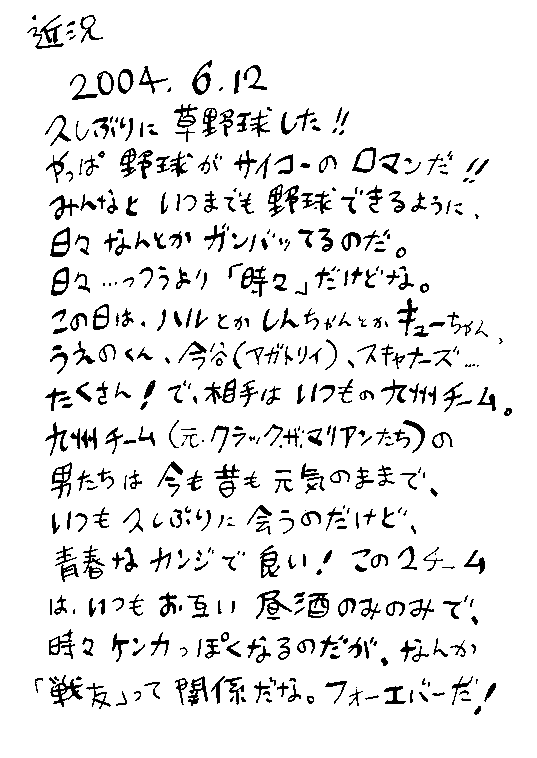 近況
2004. 6.12
久しぶりに 草野球した!!
やっぱ 野球が サイコーの ロマンだ!!
みんなと いつまでも 野球できるように、
日々 なんとか ガンバッてるのだ。
日々…っつうより「時々」だけどな。
この日は、ハルとか しんちゃんとか キューちゃん、
うえのくん、今谷(アガトリイ)、スキャナーズ….
たくさん! で、相手は いつもの 九州チーム。
九州チーム (元・クラック・ザ・マリアンたち)の
男たちは 今も 昔も 元気のままで、
いつも 久しぶりに 会うのだけど、
青春な カンジで 良い! この2チーム
は、いつも お互い 昼酒のみのみで、
時々 ケンカっぽくなるのだが、なんか
「戦友」って 関係だな。フォーエバーだ!